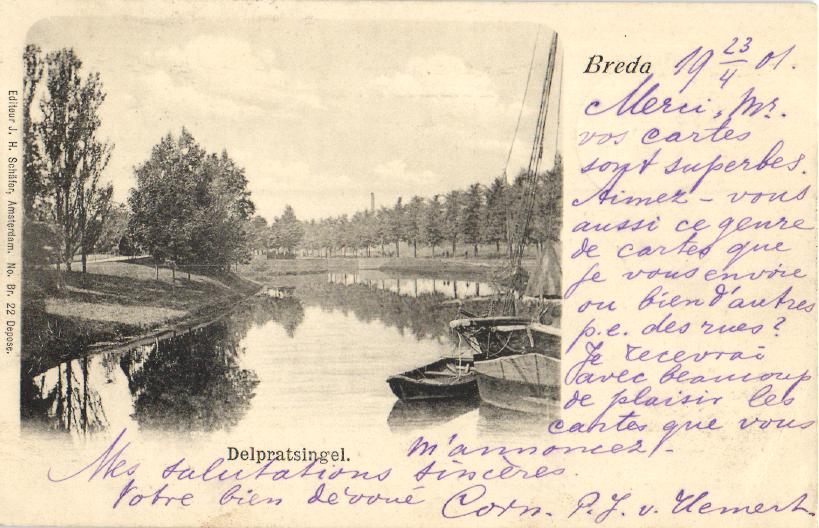 Breda 19 23/4 01.
Merci, Mr.
vos cartes
sont superbes.
Aimez-vous
aussi ce genre
de cartes que
je vous envoie
ou bien d'autres
p.e. des rues?
Je recevrai
avec beaucoup
de plaisir les
cartes que vous
m'annoncez.
Mes salutations sincères.
Votre bien dévoué Corn. P. J. v. Hemert.
Delpratsingel.
Editeur J. H. Schäfer, Amsterdam. No. Br. 22 Depose.